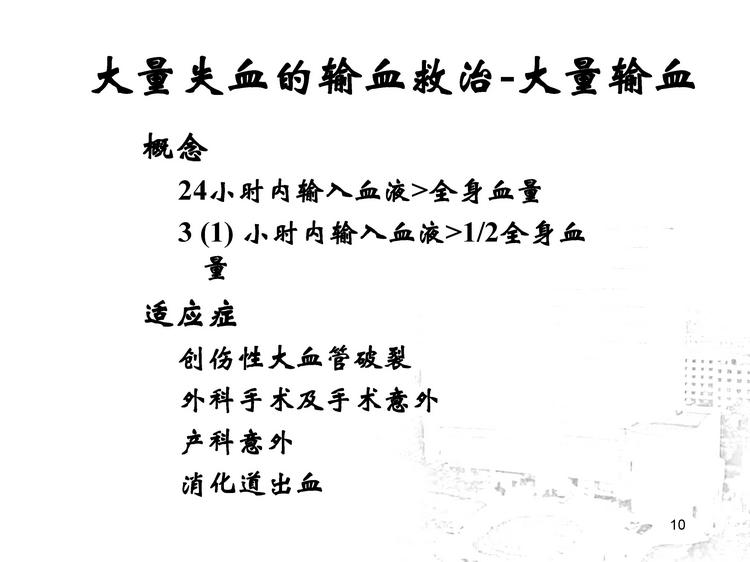 大量失血的输血救治-大量输血
概念
24小时内输入血液>全身血量
3 (1) 小时内输入血液>1/2全身血
量
适应症
创伤性大血管破裂
外科手术及手术意外
产科意外
消化道出血
10